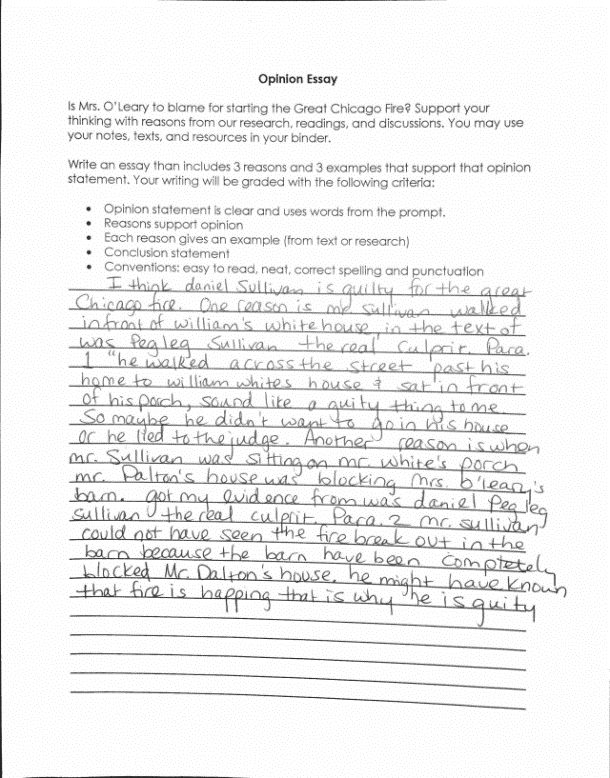 Opinion Essay
Is Mrs. O'Leary to blame for starting the Great Chicago Fire? Support your
thinking with reasons from our research, readings, and discussions. You may use
your notes, texts, and resources in your binder.
Write an essay than includes 3 reasons and 3 examples that support that opinion
statement. Your writing will be graded with the following criteria:
• Opinion statement is clear and uses words from the prompt.
• Reasons support opinion
• Each reason gives an example (from text or research)
• Conclusion statement
• Conventions: easy to read, neat, correct spelling and punctuation
I think daniel Sullivan is guilty for the great
Chicago fire. One reason is mr. Sullivan walked
infront of william's white house, in the text of
was Peg leg Sullivan the real Culprit. Para.
1 "he walked across the street past his
home to william whites house & sat in front
of his porch, sound like a guity thing to me.
So maybe he didn't want to go in his house
or he lied to the judge. Another reason is when
mr. Sullivan was sitting on mr. white's porch
mr. Dalton's house was blocking Mrs. O'leary's
barn. got my evidence from was daniel Peg leg
Sullivan the real culprit. Para. 2 mr. sullivan
could not have seen the fire break out in the
barn because the barn have been completely
blocked Mr. Dalton's house. he might have known
that fire is happing that is why he is guity